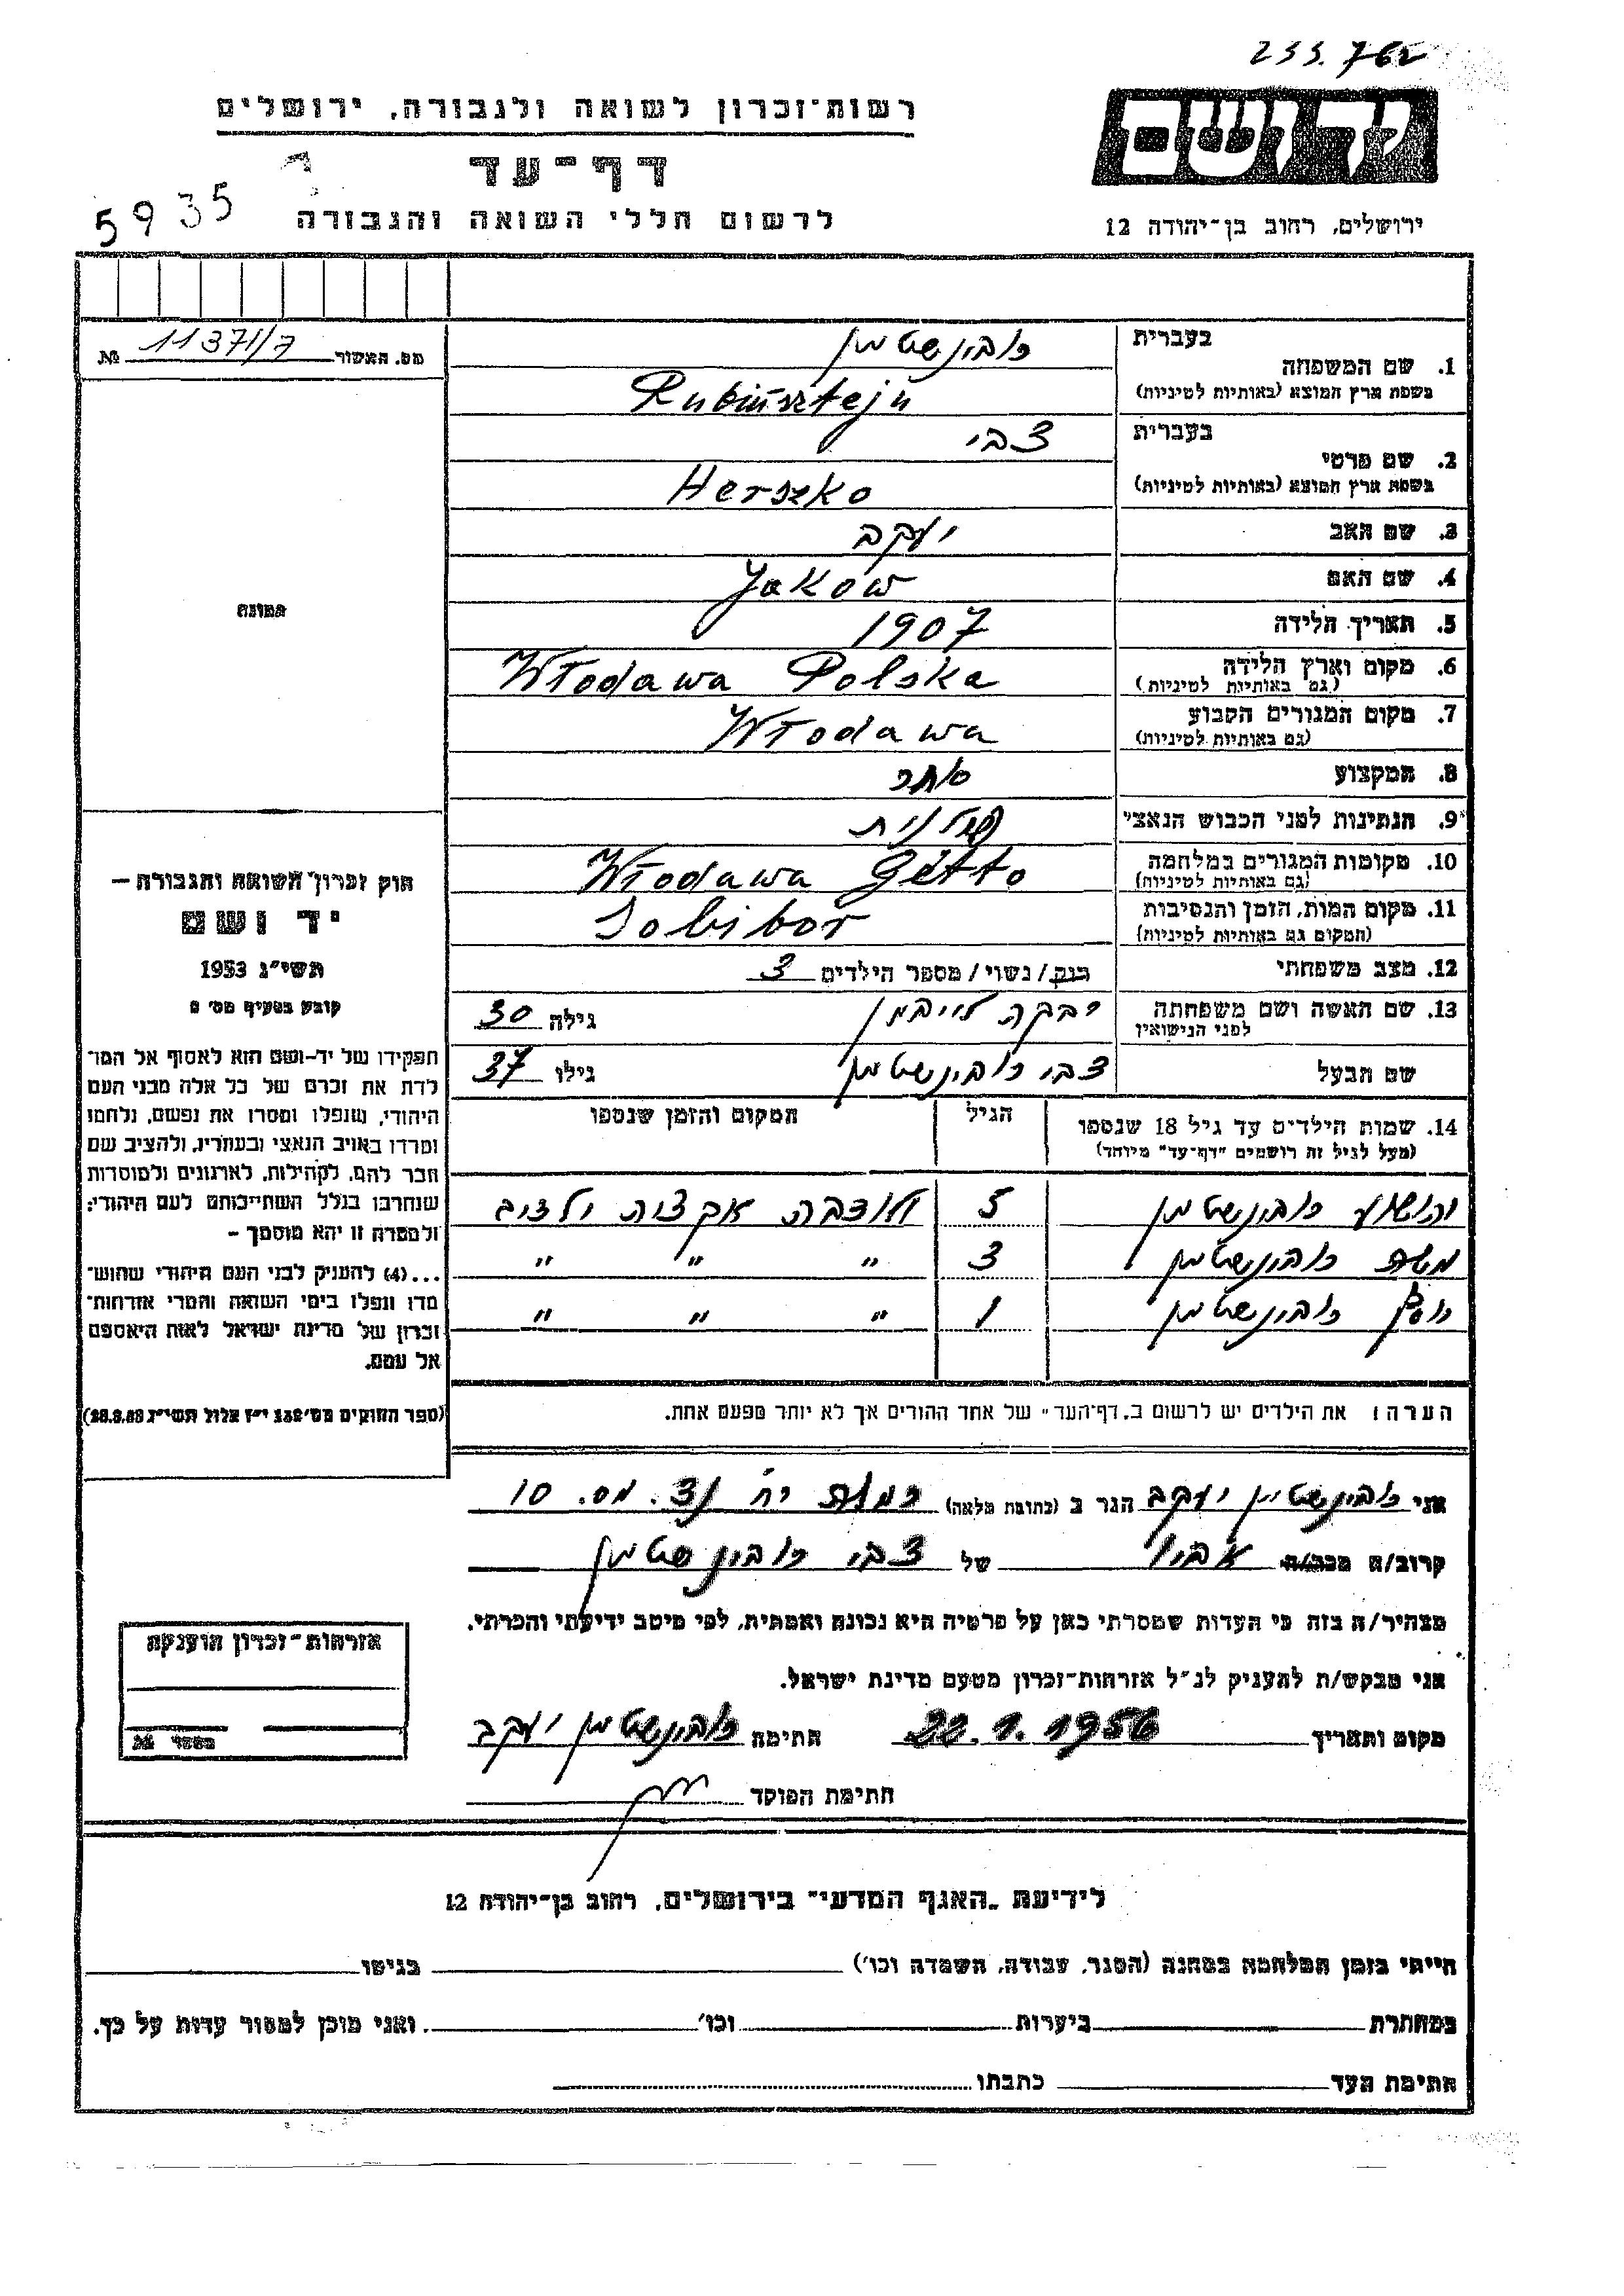 233.762
יד ושם
ירושלים, רחוב בן-יהודה 12
רשות-זכרון לשואה ולגבורה, ירושלים
דף-עד
לרשום חללי השואה והגבורה
5935
מס. האשור 11371/7 №
תמונה
חוק זכרון השואה והגבורה —
יד ושם
תשי״ג 1953
קובע בסעיף מס׳ 2
תפקידו של יד-ושם הוא לאסוף אל המו־
לדת את זכרם של כל אלה מבני העם
היהודי, שנפלו ומסרו את נפשם, נלחמו
ומרדו באויב הנאצי ובעוזריו, ולהציב שם
וזכר להם, לקהילות, לארגונים ולמוסדות
שנחרבו בגלל השתייכותם לעם היהודי;
ולמטרה זו יהא מוסמך —
...(4) להעניק לבני העם היהודי שהוש־
מדו ונפלו בימי השואה והמרי אזרחות־
זכרון של מדינת ישראל לאות היאספם
אל עמם.
(ספר החוקים מס׳ 132 י״ז אלול תשי״ג 28.8.53)
1. שם המשפחה
בעברית רובינשטיין
בשפת ארץ המוצא (באותיות לטיניות) Rubinsztejn
2. שם פרטי
בעברית צבי
בשפת ארץ המוצא (באותיות לטיניות) Herszko
3. שם האב יעקב
4. שם האם Jakow
5. תאריך הלידה 1907
6. מקום וארץ הלידה (גם באותיות לטיניות) Włodawa Polska
7. מקום המגורים הקבוע (גם באותיות לטיניות) Włodawa
8. המקצוע סוחר
9. הנתינות לפני הכבוש הנאצי פולנית
10. מקומות המגורים במלחמה (גם באותיות לטיניות) Włodawa Getto
11. מקום המות, הזמן והנסיבות (המקום גם באותיות לטיניות) Sobibor
12. מצב משפחתי רווק / נשוי / מספר הילדים 3
13. שם האשה ושם משפחתה לפני הנישואין רבקה לייבמן גילה 30
שם הבעל צבי רובינשטיין גילו 37
14. שמות הילדים עד גיל 18 שנספו הגיל המקום והזמן שנספו
(מעל לגיל זה רושמים ״דף-עד״ מיוחד)
יהושוע רובינשטיין 5 ולודבה אקצית ילדים
רובינשטיין 3 ״ ״ ״
רובינשטיין 1 ״ ״ ״
הערה: את הילדים יש לרשום ב„דף-העד״ של אחד ההורים אך לא יותר מפעם אחת.
אני רובינשטיין יעקב הגר ב (כתובת מלאה) רמת מס. 10
קרוב/ה מכר/ה אביו של צבי רובינשטיין
מצהיר/ה בזה כי העדות שמסרתי כאן על פרטיה היא נכונה ואמתית, לפי מיטב ידיעתי והכרתי.
אני מבקש/ת להעניק לנ״ל אזרחות-זכרון מטעם מדינת ישראל.
מקום ותאריך 22.1.1956 חתימה רובינשטיין יעקב
חתימת הפוקד
אזרחות-זכרון הוענקה
מספר №
לידיעת „האגף המדעי״ בירושלים, רחוב בן-יהודה 12
הייתי בזמן המלחמה במחנה (הסגר, עבודה, השמדה וכו׳) בגיטו
במחתרת ביערות וכו׳ ואני מוכן למסור עדות על כך.
חתימת העד כתבתו